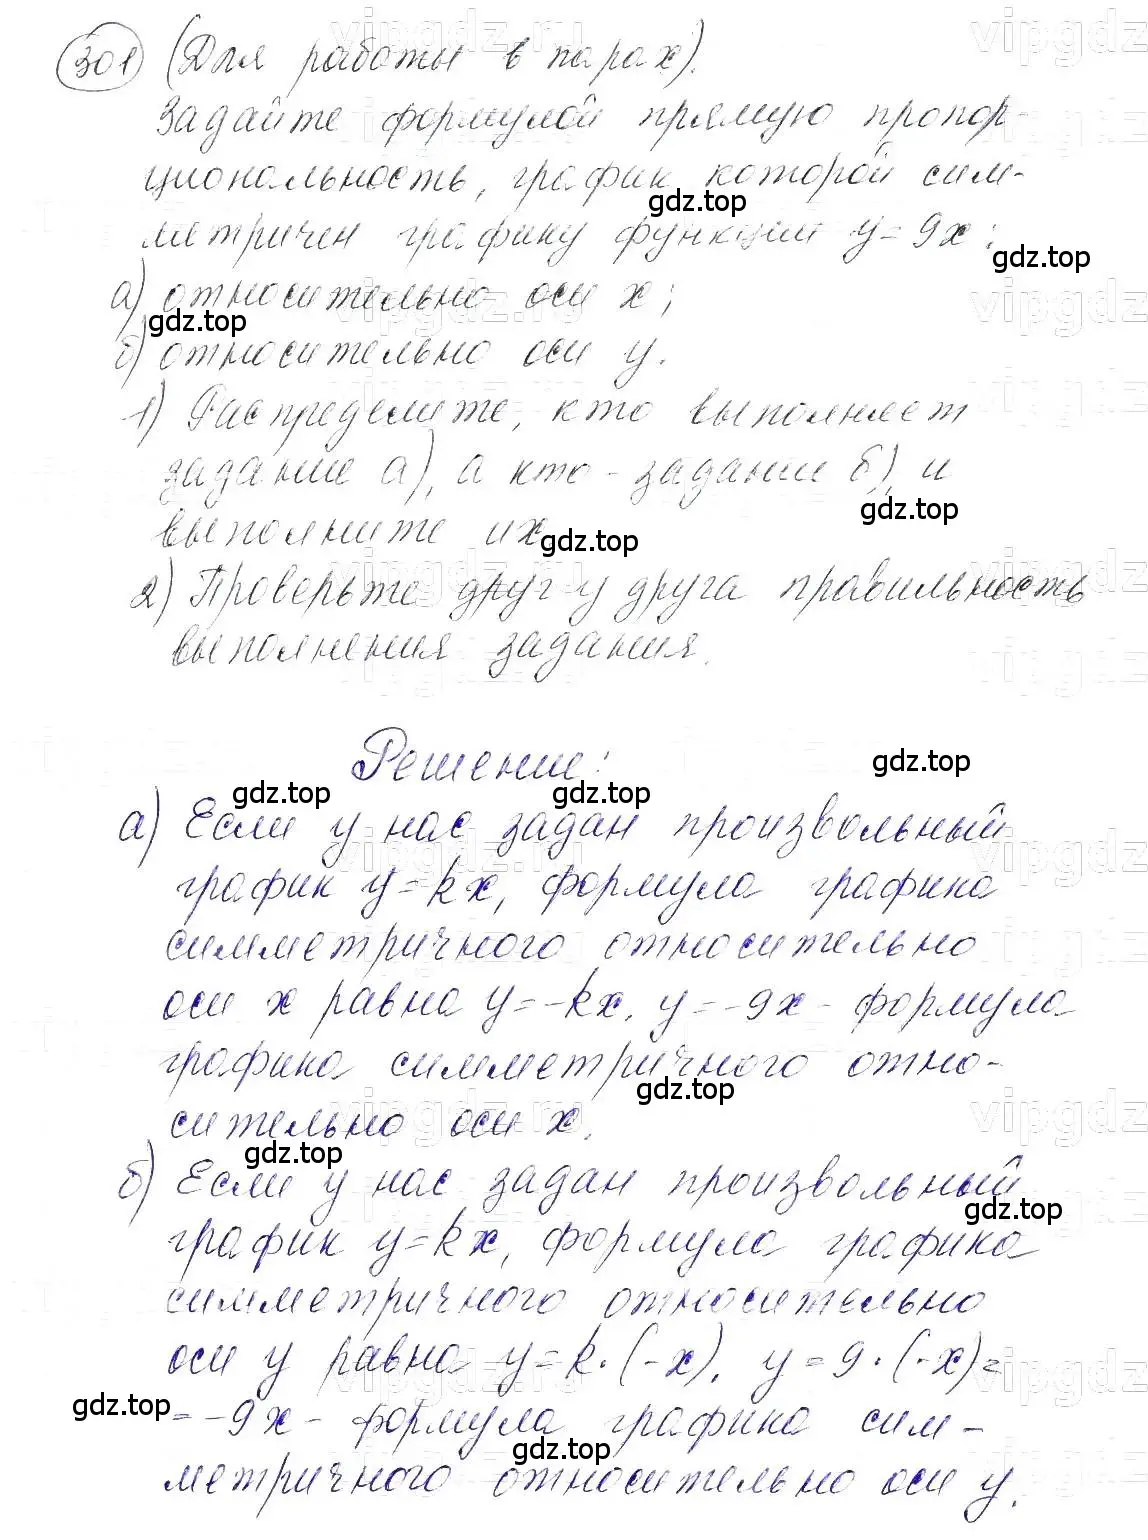 301 (Для работы в парах).
Задайте формулой прямую пропор-
циональность, график которой сим-
метричен графику функции y = 9x:
а) относительно оси x;
б) относительно оси y.
1) Распределите, кто выполняет
задание а), а кто - задание б), и
выполните их.
2) Проверьте друг у друга правильность
выполнения задания.
Решение:
а) Если у нас задан произвольный
график y = kx, формула графика
симметричного относительно
оси x равна y = -kx. y = -9x - формула
графика симметричного отно-
сительно оси x.
б) Если у нас задан произвольный
график y = kx, формула графика
симметричного относительно
оси y равна y = k · (-x). y = 9 · (-x) =
= -9x - формула графика сим-
метричного относительно оси y.